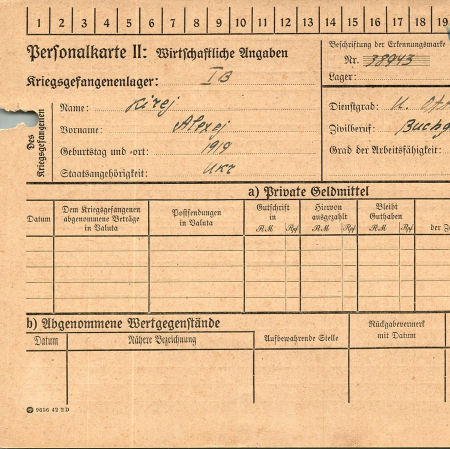 1 2 3 4 5 6 7 8 9 10 11 12 13 14 15 16 17 18 19
Personalkarte II: Wirtschaftliche Angaben
Kriegsgefangenenlager: IB
Beschriftung der Erkennungsmarke
Nr. 38943
Lager:
Des Kriegsgefangenen
Name: Kirej
Vorname: Alexej
Geburtstag und -ort: 1919
Staatsangehörigkeit: Ukr
Dienstgrad: U.
Zivilberuf: Buchg
Grad der Arbeitsfähigkeit:
a) Private Geldmittel
Datum
Dem Kriegsgefangenen abgenommene Beträge in Valuta
Postsendungen in Valuta
Gutschrift in RM Rpf
Hiervon ausgezahlt RM Rpf
Bleibt Guthaben RM Rpf
der
b) Abgenommene Wertgegenstände
Datum
Nähere Bezeichnung
Aufbewahrende Stelle
Rückgabevermerk mit Datum
9656 42 2 D